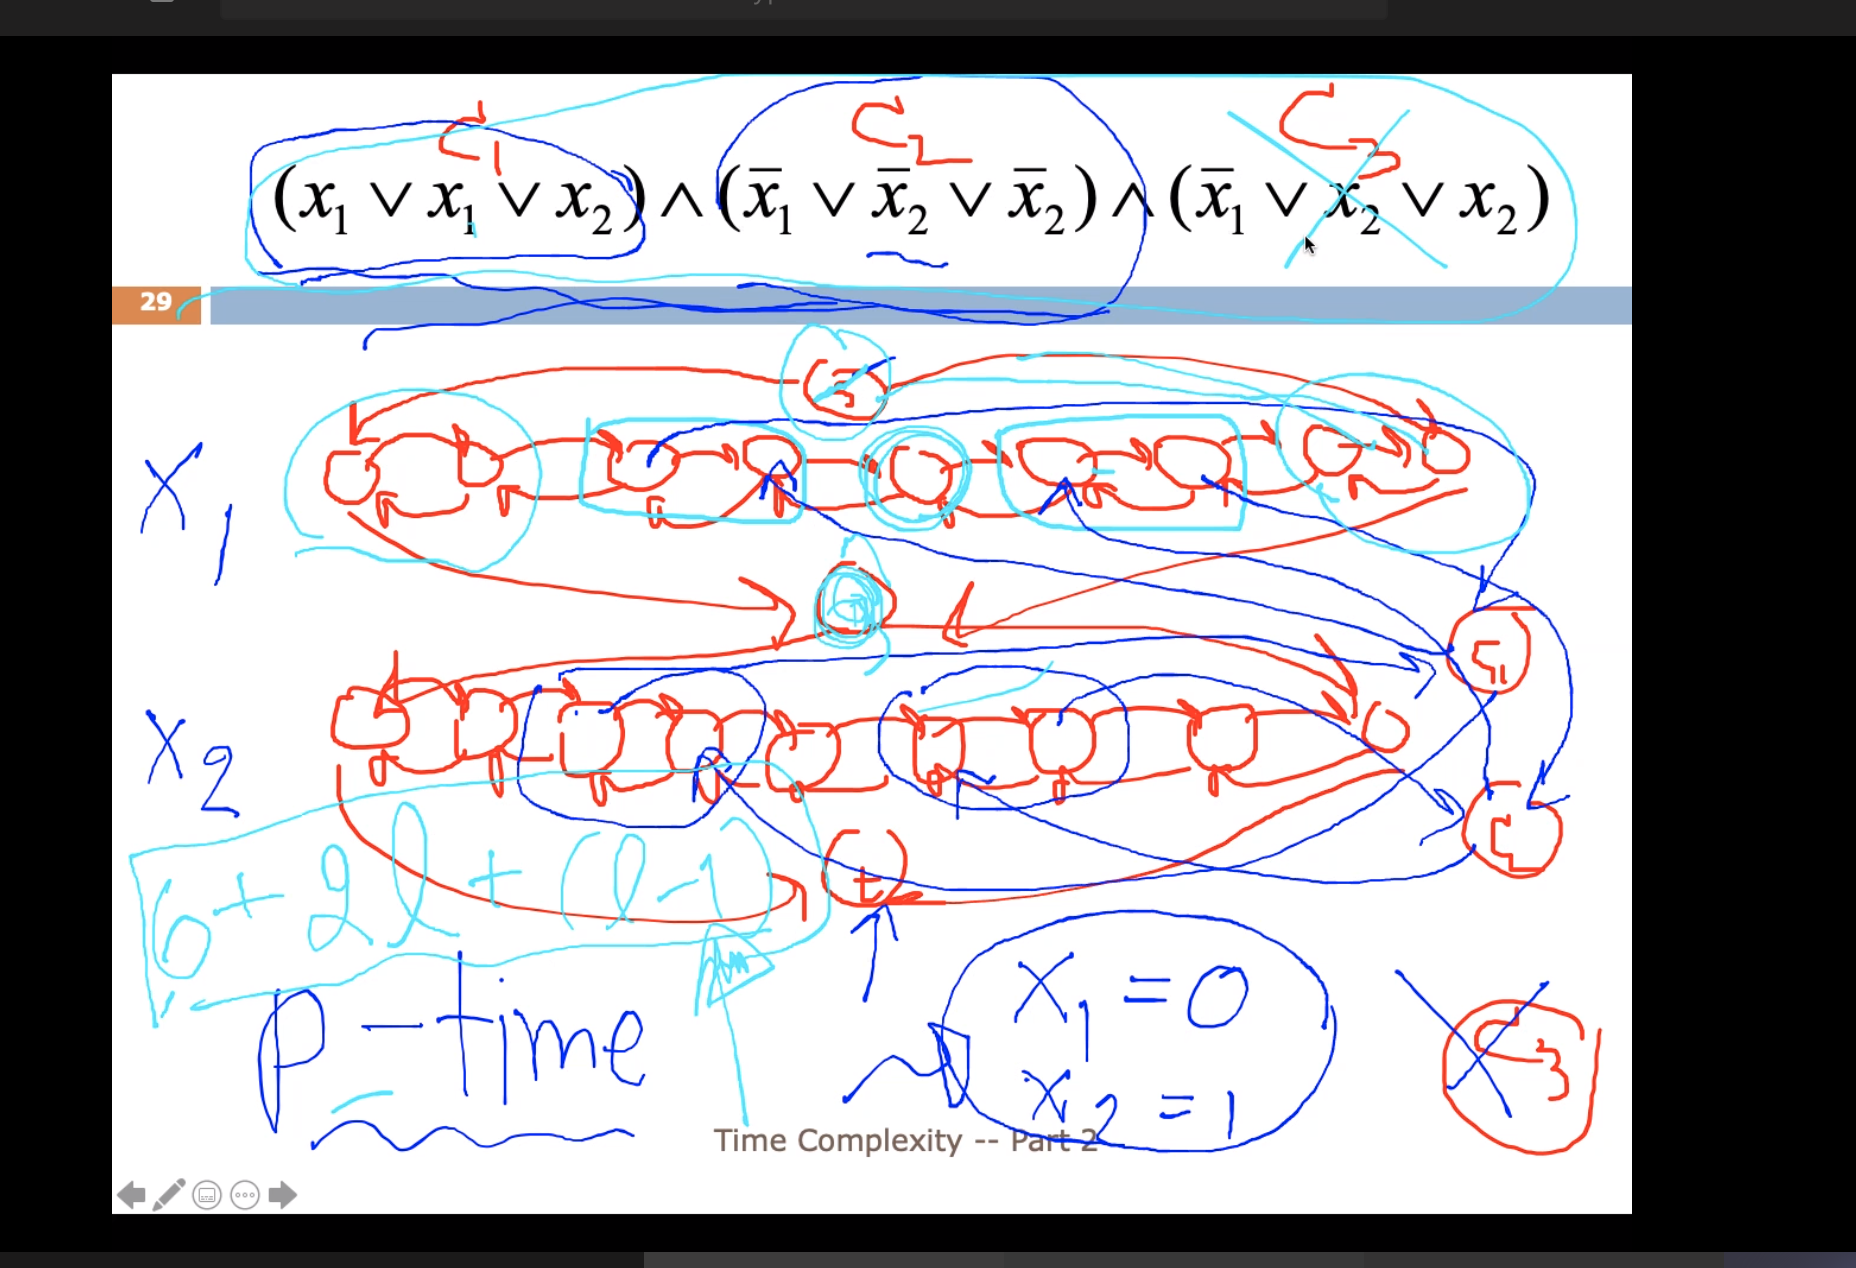 C1 C2 C3
(x̄1 ∨ x1 ∨ x2) ∧ (x̄1 ∨ x̄2 ∨ x̄2) ∧ (x̄1 ∨ x2 ∨ x2)
29
S
X1
C1
X2
C2
6+2l+(l-1)
t
P-time
X1 = 0
X2 = 1
C3
Time Complexity -- Part 2